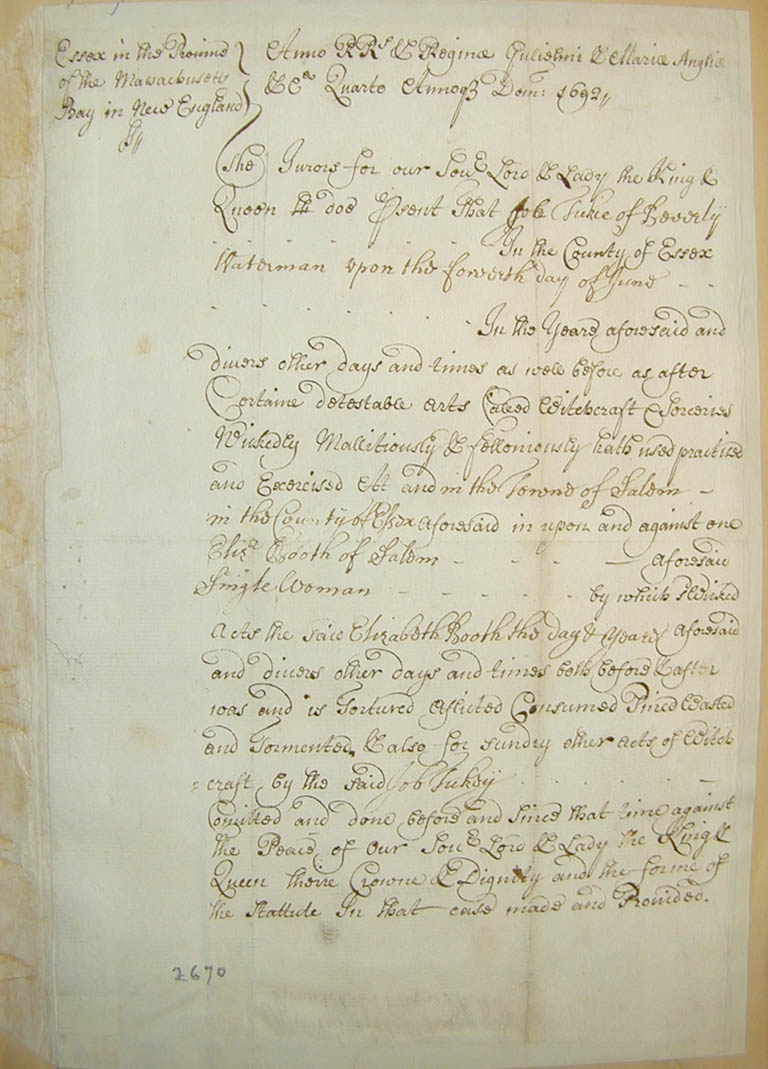 Essex in the Province
of the Massachusetts
Bay in New England
ss//
Anno RRs & Reginæ Gulielmi & Mariæ Angliæ
& Ca Quarto Annoq3 Dom: 1692//
The Jurors for our Sovr Lord & Lady the King &
Queen doe psent That Job Tukie of Beverly
In the County of Essex
Waterman vpon the fowerth day of June - -
In the Yeare aforesaid and
divers other days and times as well before as after
Certaine detestable Arts Called Witchcraft & Sorceries
Wickedly Mallitiously & felloniously hath used practised
and Exercised Att and in the Towne of Salem -
in the County of Essex aforesaid in upon and against one
Eliza Booth of Salem - - - - - aforesaid
Single Woman - - - - - by which Wicked
Acts the said Elizabeth Booth the day & Yeare aforesaid
and divers other days and times both before & after
was and is Tortured Aflicted Consumed Pined Wasted
and Tormented, & also for sundry other Acts of Witch
= craft by the said Job Tukey . . . . . -
Comitted and done before and since that time against
the Peace of our Sovr Lord & Lady the King &
Queen theire Crowne & Dignity and the forme of
the Stattute In that case made and Provided.
2670